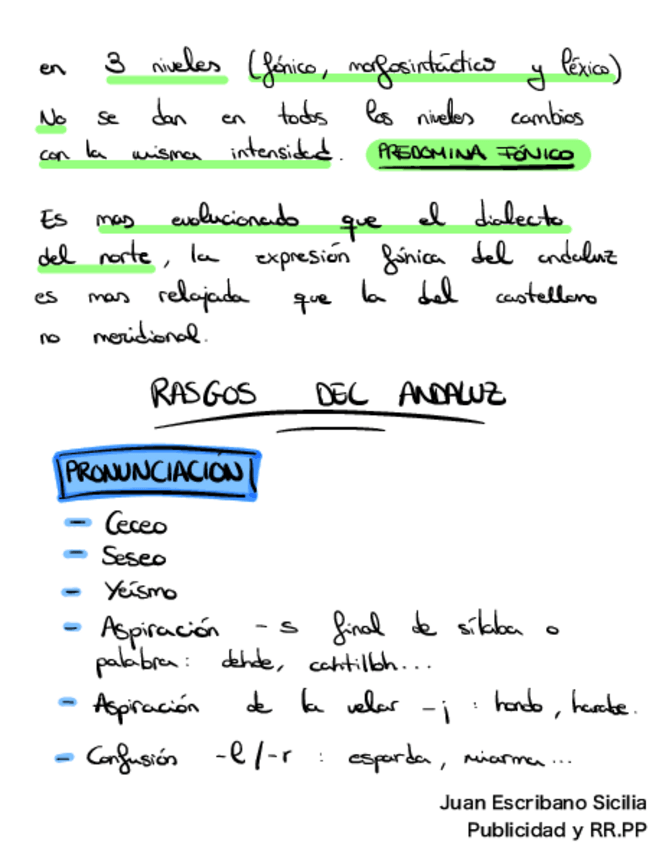 en 3 niveles (fónico, morfosintáctico y léxico)
No se dan en todos los niveles cambios
con la misma intensidad. PREDOMINA FÓNICO
Es mas evolucionado que el dialecto
del norte, la expresión fónica del andaluz
es mas relajada que la del castellano
no meridional.
RASGOS DEL ANDALUZ
PRONUNCIACIÓN
- Ceceo
- Seseo
- Yeísmo
- Aspiración -s final de sílaba o
palabra: dehde, cahtilloh...
- Aspiración de la velar -j : hondo, harabe.
- Confusión -l/-r : esparda, miarma...
Juan Escribano Sicilia
Publicidad y RR.PP